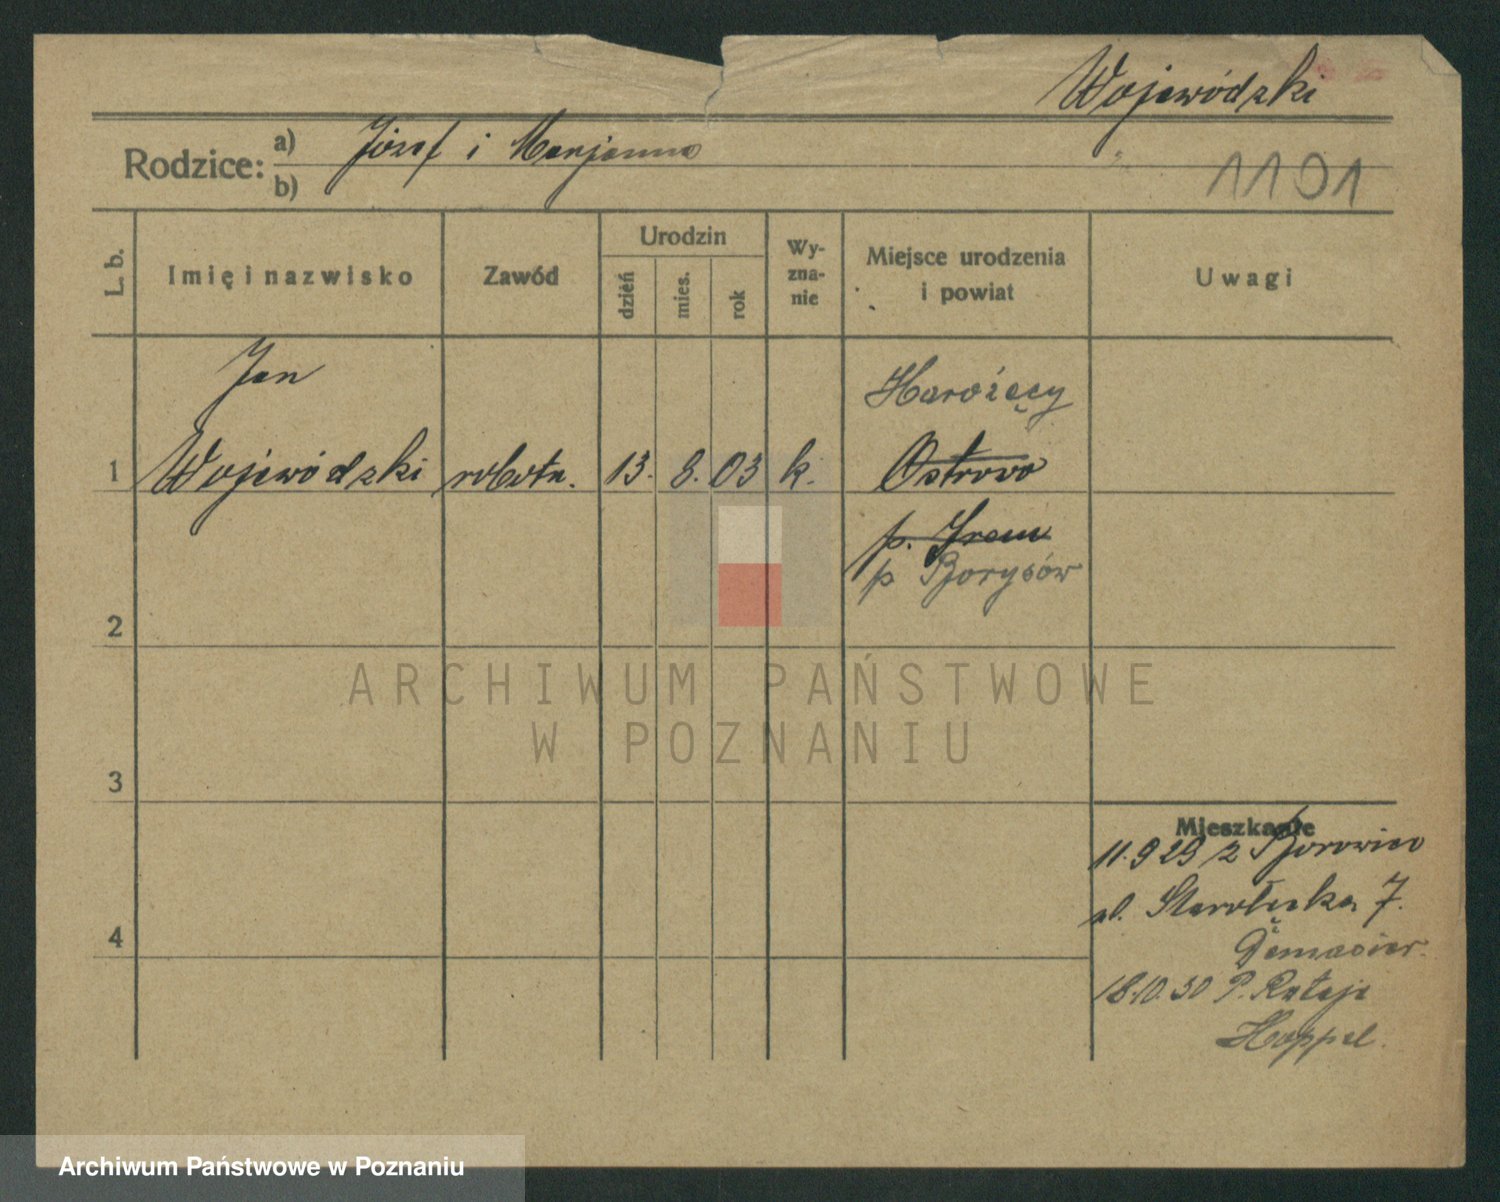 Wojewódzki
Rodzice: a) Józef i Marjanna
b)
1101
L. b.
Imię i nazwisko
Zawód
Urodzin
dzień
mies.
rok
Wy-
zna-
nie
Miejsce urodzenia
i powiat
Uwagi
Jan
Harożęcy
1 Wojewódzki robotn. 13. 8. 03 k. Ostrowo
p. Śrem
p Borysów
2
ARCHIWUM PAŃSTWOWE
W POZNANIU
3
Mieszkanie
11.9 29 z Borowiec
ul. Starołęcka 7.
4
18.10.30 P. Rataje
Hoppel.
Archiwum Państwowe w Poznaniu